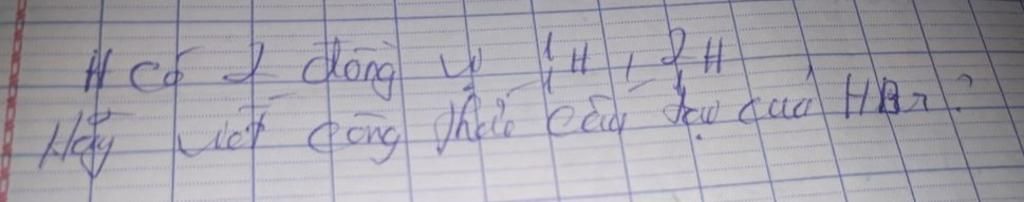 H có 2 đồng vị ¹₁H, ²₁H
Hãy viết công thức cấu tạo của HBr?